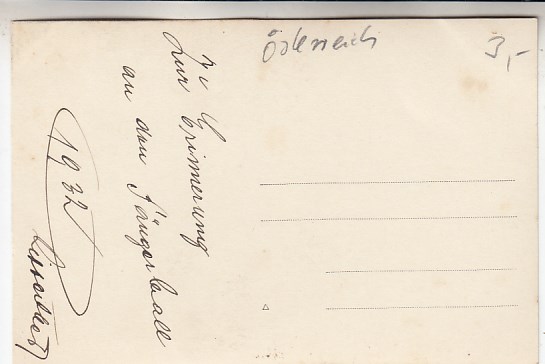 Österreich
3,-
zur Erinnerung
an den Sängerball
1932